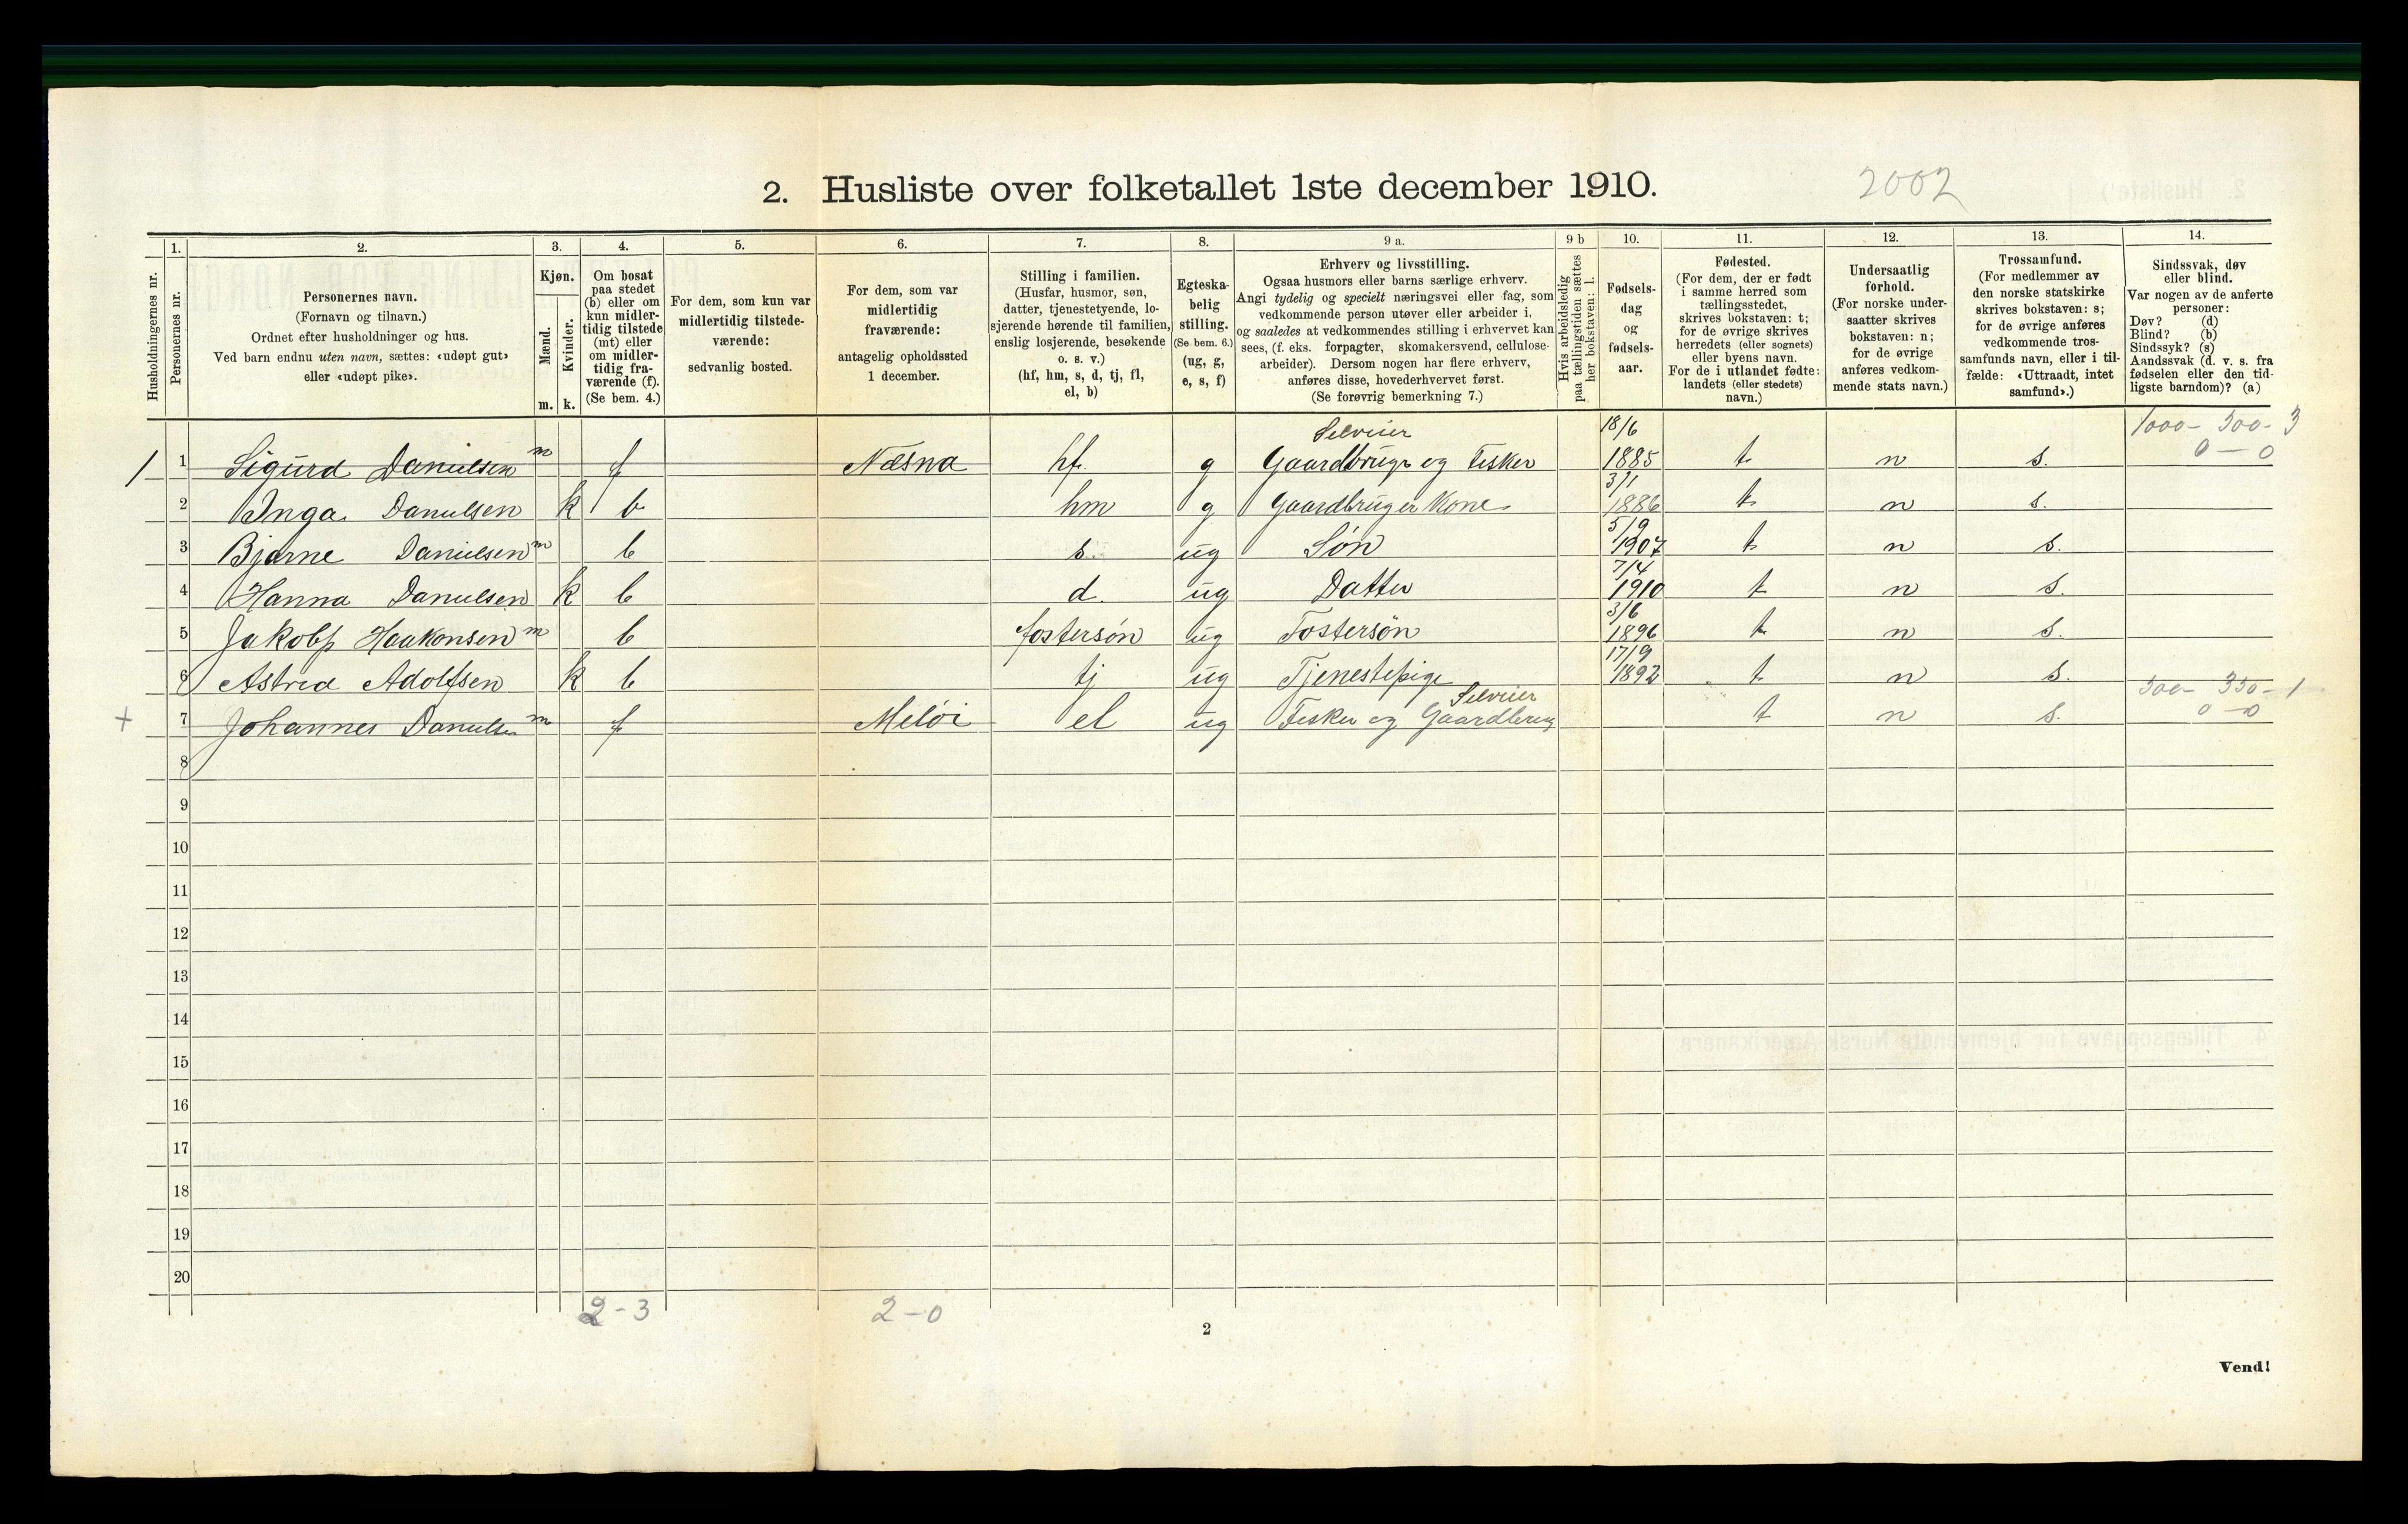 2. Husliste over folketallet 1ste december 1910.
2002
1. 2. 3. 4. 5. 6. 7. 8. 9 a. 9 b 10. 11. 12. 13. 14.
Husholdningernes nr.
Personernes nr.
Personernes navn.
(Fornavn og tilnavn.)
Ordnet efter husholdninger og hus.
Ved barn endnu uten navn, sættes: «udøpt gut»
eller «udøpt pike».
Kjøn.
Mænd.
Kvinder.
m. k.
Om bosat
paa stedet
(b) eller om
kun midler-
tidig tilstede
(mt) eller
om midler-
tidig fra-
værende (f).
(Se bem. 4.)
For dem, som kun var
midlertidig tilstede-
værende:
sedvanlig bosted.
For dem, som var
midlertidig
fraværende:
antagelig opholdssted
1 december.
Stilling i familien.
(Husfar, husmor, søn,
datter, tjenestetyende, lo-
sjerende hørende til familien,
enslig losjerende, besøkende
o. s. v.)
(hf, hm, s, d, tj, fl,
el, b)
Egteska-
belig
stilling.
(Se bem. 6.)
(ug, g,
e, s, f)
Erhverv og livsstilling.
Ogsaa husmors eller barns særlige erhverv.
Angi tydelig og specielt næringsvei eller fag, som
vedkommende person utøver eller arbeider i,
og saaledes at vedkommendes stilling i erhvervet kan
sees, (f. eks. forpagter, skomakersvend, cellulose-
arbeider). Dersom nogen har flere erhverv,
anføres disse, hovederhvervet først.
(Se forøvrig bemerkning 7.)
Hvis arbeidsledig
paa tællingstiden sættes
her bokstaven: l.
Fødsels-
dag
og
fødsels-
aar.
Fødested.
(For dem, der er født
i samme herred som
tællingsstedet,
skrives bokstaven: t;
for de øvrige skrives
herredets (eller sognets)
eller byens navn.
For de i utlandet fødte:
landets (eller stedets)
navn.)
Undersaatlig
forhold.
(For norske under-
saatter skrives
bokstaven: n;
for de øvrige
anføres vedkom-
mende stats navn.)
Trossamfund.
(For medlemmer av
den norske statskirke
skrives bokstaven: s;
for de øvrige anføres
vedkommende tros-
samfunds navn, eller i til-
fælde: «Uttraadt, intet
samfund».)
Sindssvak, døv
eller blind.
Var nogen av de anførte
personer:
Døv? (d)
Blind? (b)
Sindssyk? (s)
Aandssvak (d. v. s. fra
fødselen eller den tid-
ligste barndom)? (a)
Selveier 18/6 1000- 300- 3
1 1 Sigurd Danielsen m f Næsna hf. g Gaardbruger og Fisker 1885 t n s. 0 - 0
3/1
2 Inga Danielsen k b hm g Gaardbruger Kone 1886 t n s.
5/9
3 Bjarne Danielsen m b s. ug Søn 1907 t n s.
7/4
4 Hanna Danielsen k b d. ug Datter 1910 t n s.
3/6
5 Jakob Haakonsen m b fostersøn ug Fostersøn 1896 t n s.
17/9
6 Astrid Adolfsen k b tj ug Tjenestepige 1892 t n s.
Selveier 350- 1
+ 7 Johannes Danielsen m f Meløi el ug Fisker og Gaardbrug t n s. 0 - 0
8
9
10
11
12
13
14
15
16
17
18
19
20
2 - 3 2 - 0
2
Vend!